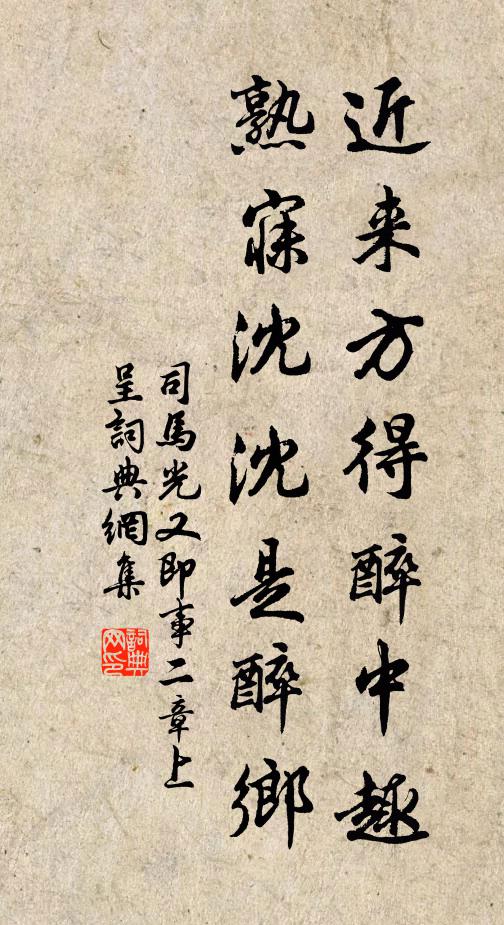 近来方得醉中趣
熟寐沈沈是醉鄉
司馬光又即事二章上
呈詞典網集
詞典
网印